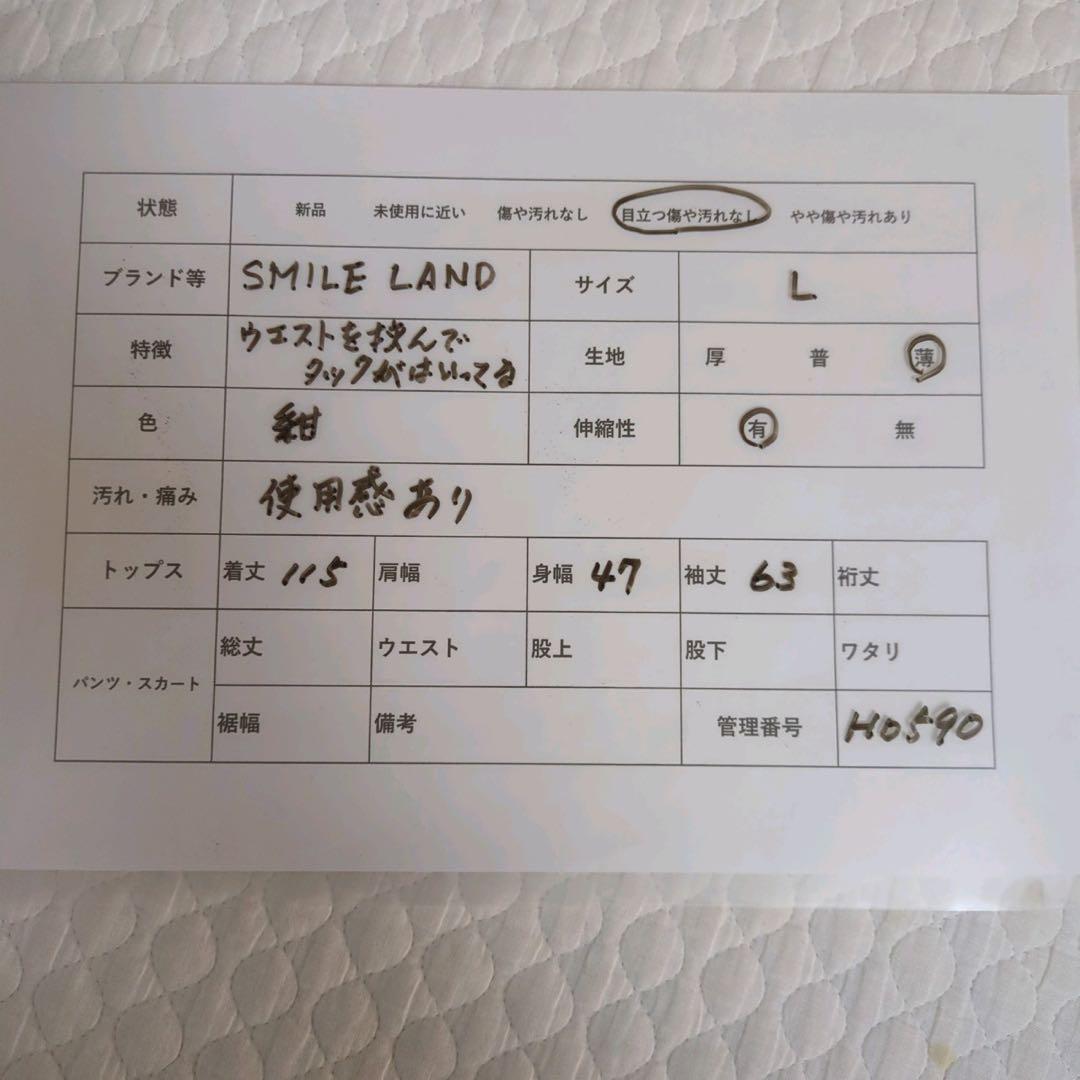 状態 新品 未使用に近い 傷や汚れなし 目立つ傷や汚れなし やや傷や汚れあり
ブランド等 SMILE LAND サイズ L
特徴 ウエストを挟んで
タックがはいってる 生地 厚 普 薄
色 紺 伸縮性 有 無
汚れ・痛み 使用感あり
トップス 着丈 115 肩幅 身幅 47 袖丈 63 裄丈
パンツ・スカート 総丈 ウエスト 股上 股下 ワタリ
裾幅 備考 管理番号 H0590